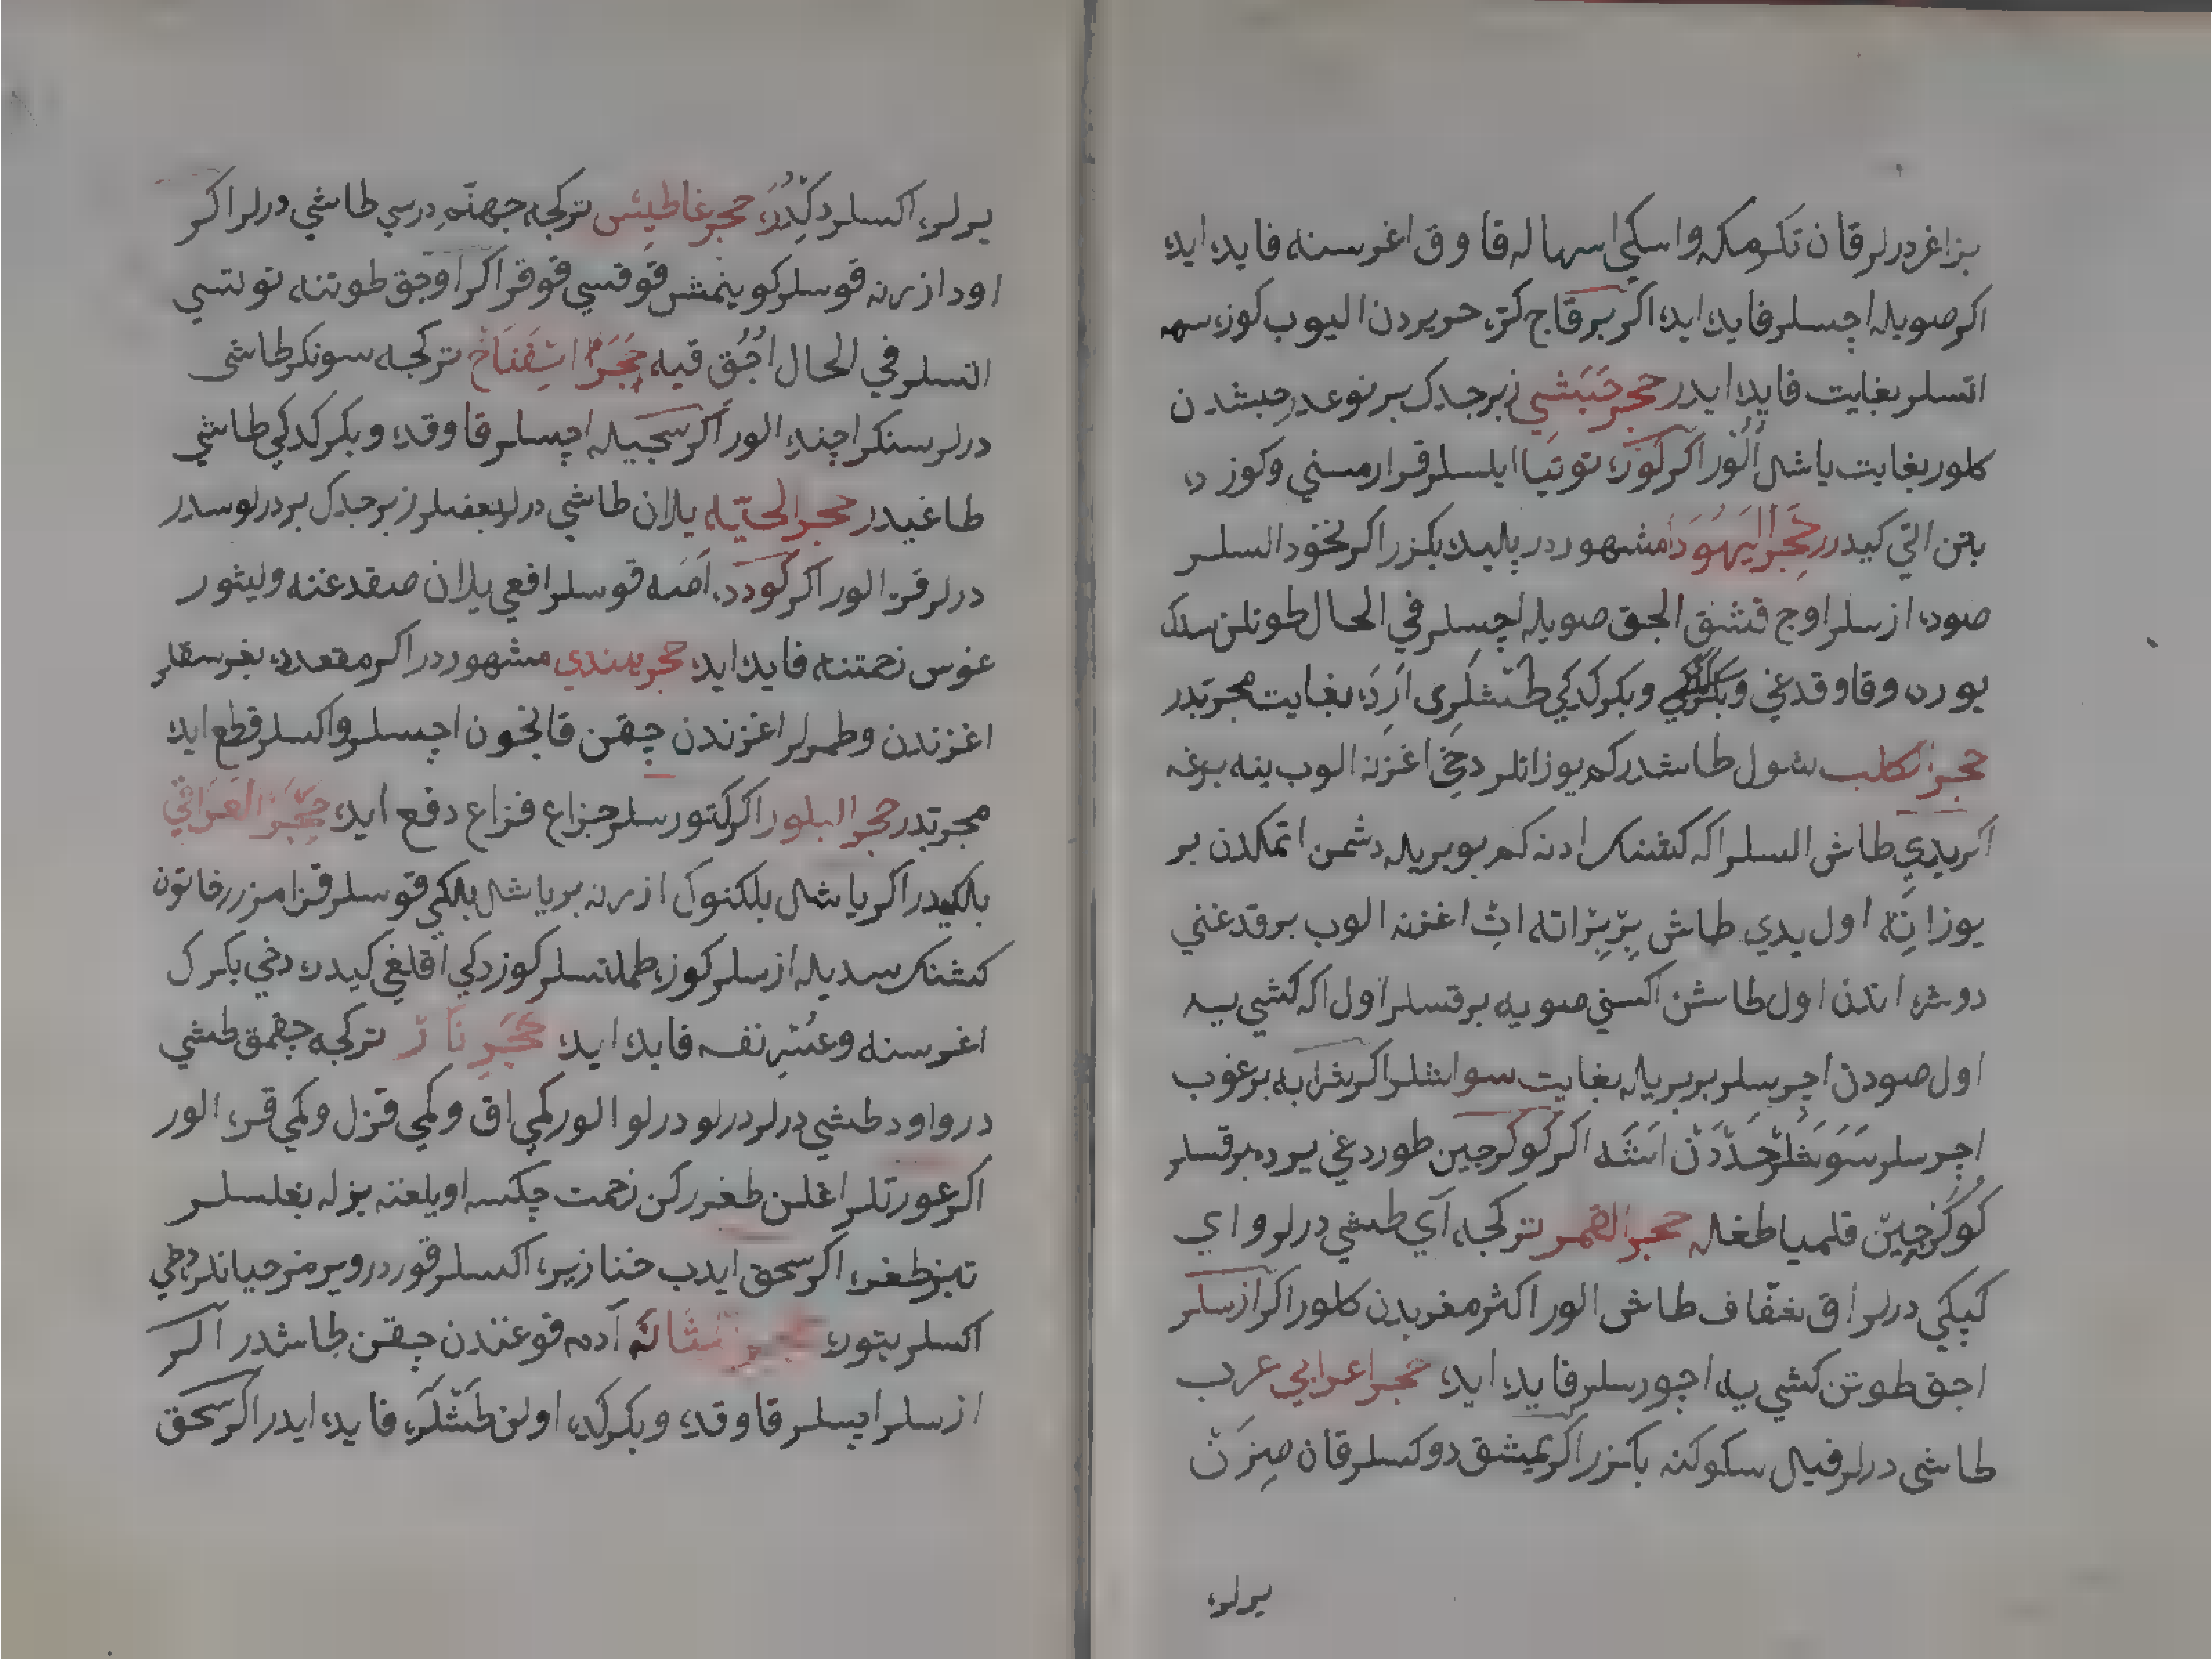 بزاغز درلر قان تكرمكه واسكي اسهاله قاوق اغرسنه فايده ايده
اكر صويله اچسلر فايده ايده اكر بر قاج كز حريردن اليوب كوزه سهه
اتسلر بغايت فايده ايدر حجر حبشي زبرجدك بر نوعدر حبشدن
كلور بغايت ياشل النور اكر كوزه توتيا ايلسلر قزارمسني وكوزده
بتن اتي كيدرر حجر اليهودا مشهوردر پليده بكزر اكر نخود السلر
صوده ازسلر اوچ قشق الجق صويله اچسلر في الحال طوتلن سدك
يوره وقاوقدغي وبكركدكي طشلري ارده بغايت مجربدر
حجر الكلب شول طاشدركم يوزانلر دخي اغزنه الوب ينه برغه
اكر يدي طاش السلر اكه كشنك ادنه كم بوبريله دشمن اتمكدن بر
يوزانه اول يدي طاش بربر اته ات اغزنه الوب برقدغني
دوشره اندن اول طاشن اكسني صويه برقسلر اول اكه كشي يه
اول صودن اچرسلر بربريله بغايت سواشلر اكر شرابه برغوب
اچرسلر سوشلر حددن اشه اكر كوكرجين طوردغي يرده برقسلر
كوكرجين قلميا طغله حجر القمر تركجه آي طشي درلر واي
كپكي درلر اق شفاف طاش الور اكثر مغربدن كلور اكر ازسلر
اجق طوتن كشي يه اچورسلر فايده ايده حجر اعرابي عرب
طاشي درلر فيل سكوكنه بكزر اكر يمشق دوكسلر قان صزن
يرلره
يرلره اكسلر دكدر حجر غاطيس تركجه جهنم درسي طاشي درلر اكر
اود ازرنه قوسلر كوينمش قوقسي قوقر اكر اوجق طوتنه توتسي
اتسلر في الحال اجق قيه حجر اسفناخ تركجه سونكر طاشي
درلر سنكر اچنده الور اكر سجيله اچسلر قاوقده وبكركدكي طاشي
طاغيدر حجر الحيه يلان طاشي درلر بعضلر زبرجدك بر درلوسدر
درلر قره الور اكر كودده اصه قوسلر افعي يلان صقدغنه وليثور
غوس زحمتنه فايده ايده حجر هندي مشهوردر اكر مقعدده بغرسقلر
اغزندن وطمرلر اغزندن چقن قانچون اچسلر واكسلر قطع ايده
مجربدر حجر البلور اكر كتورسلر جزاع فزاع دفع ايده حجر العراقي
بلكيدر اكر ياشل بلكنوك ازرنه بر ياشل بلكي قوسلر قزامزر خاتون
كشنك سديله ازسلر كوزه طملتسلر كوزدكي اقلغي كيدره دخي بكرك
اغرسنه وعسر نفسه فايده ايده حجر نار تركجه چقمق طشي
درو اود طشي درلر درلو درلو الور كمي اق وكمي قزل وكمي قره الور
اكر عورتلر اغلن طغرركن زحمت چكسه اويلغنه بزله بغلسلر
تيز طغره اكر سحق ايدب خنازيره اكسلر قوردر ويرمز حياندر دخي
اكسلر بتوره حجر مثانه آدم قوغندن چقن طاشدر اكر
ازسلر اچسلر قاوقده وبكركده اولن طشلره فايده ايدر اكر سحق